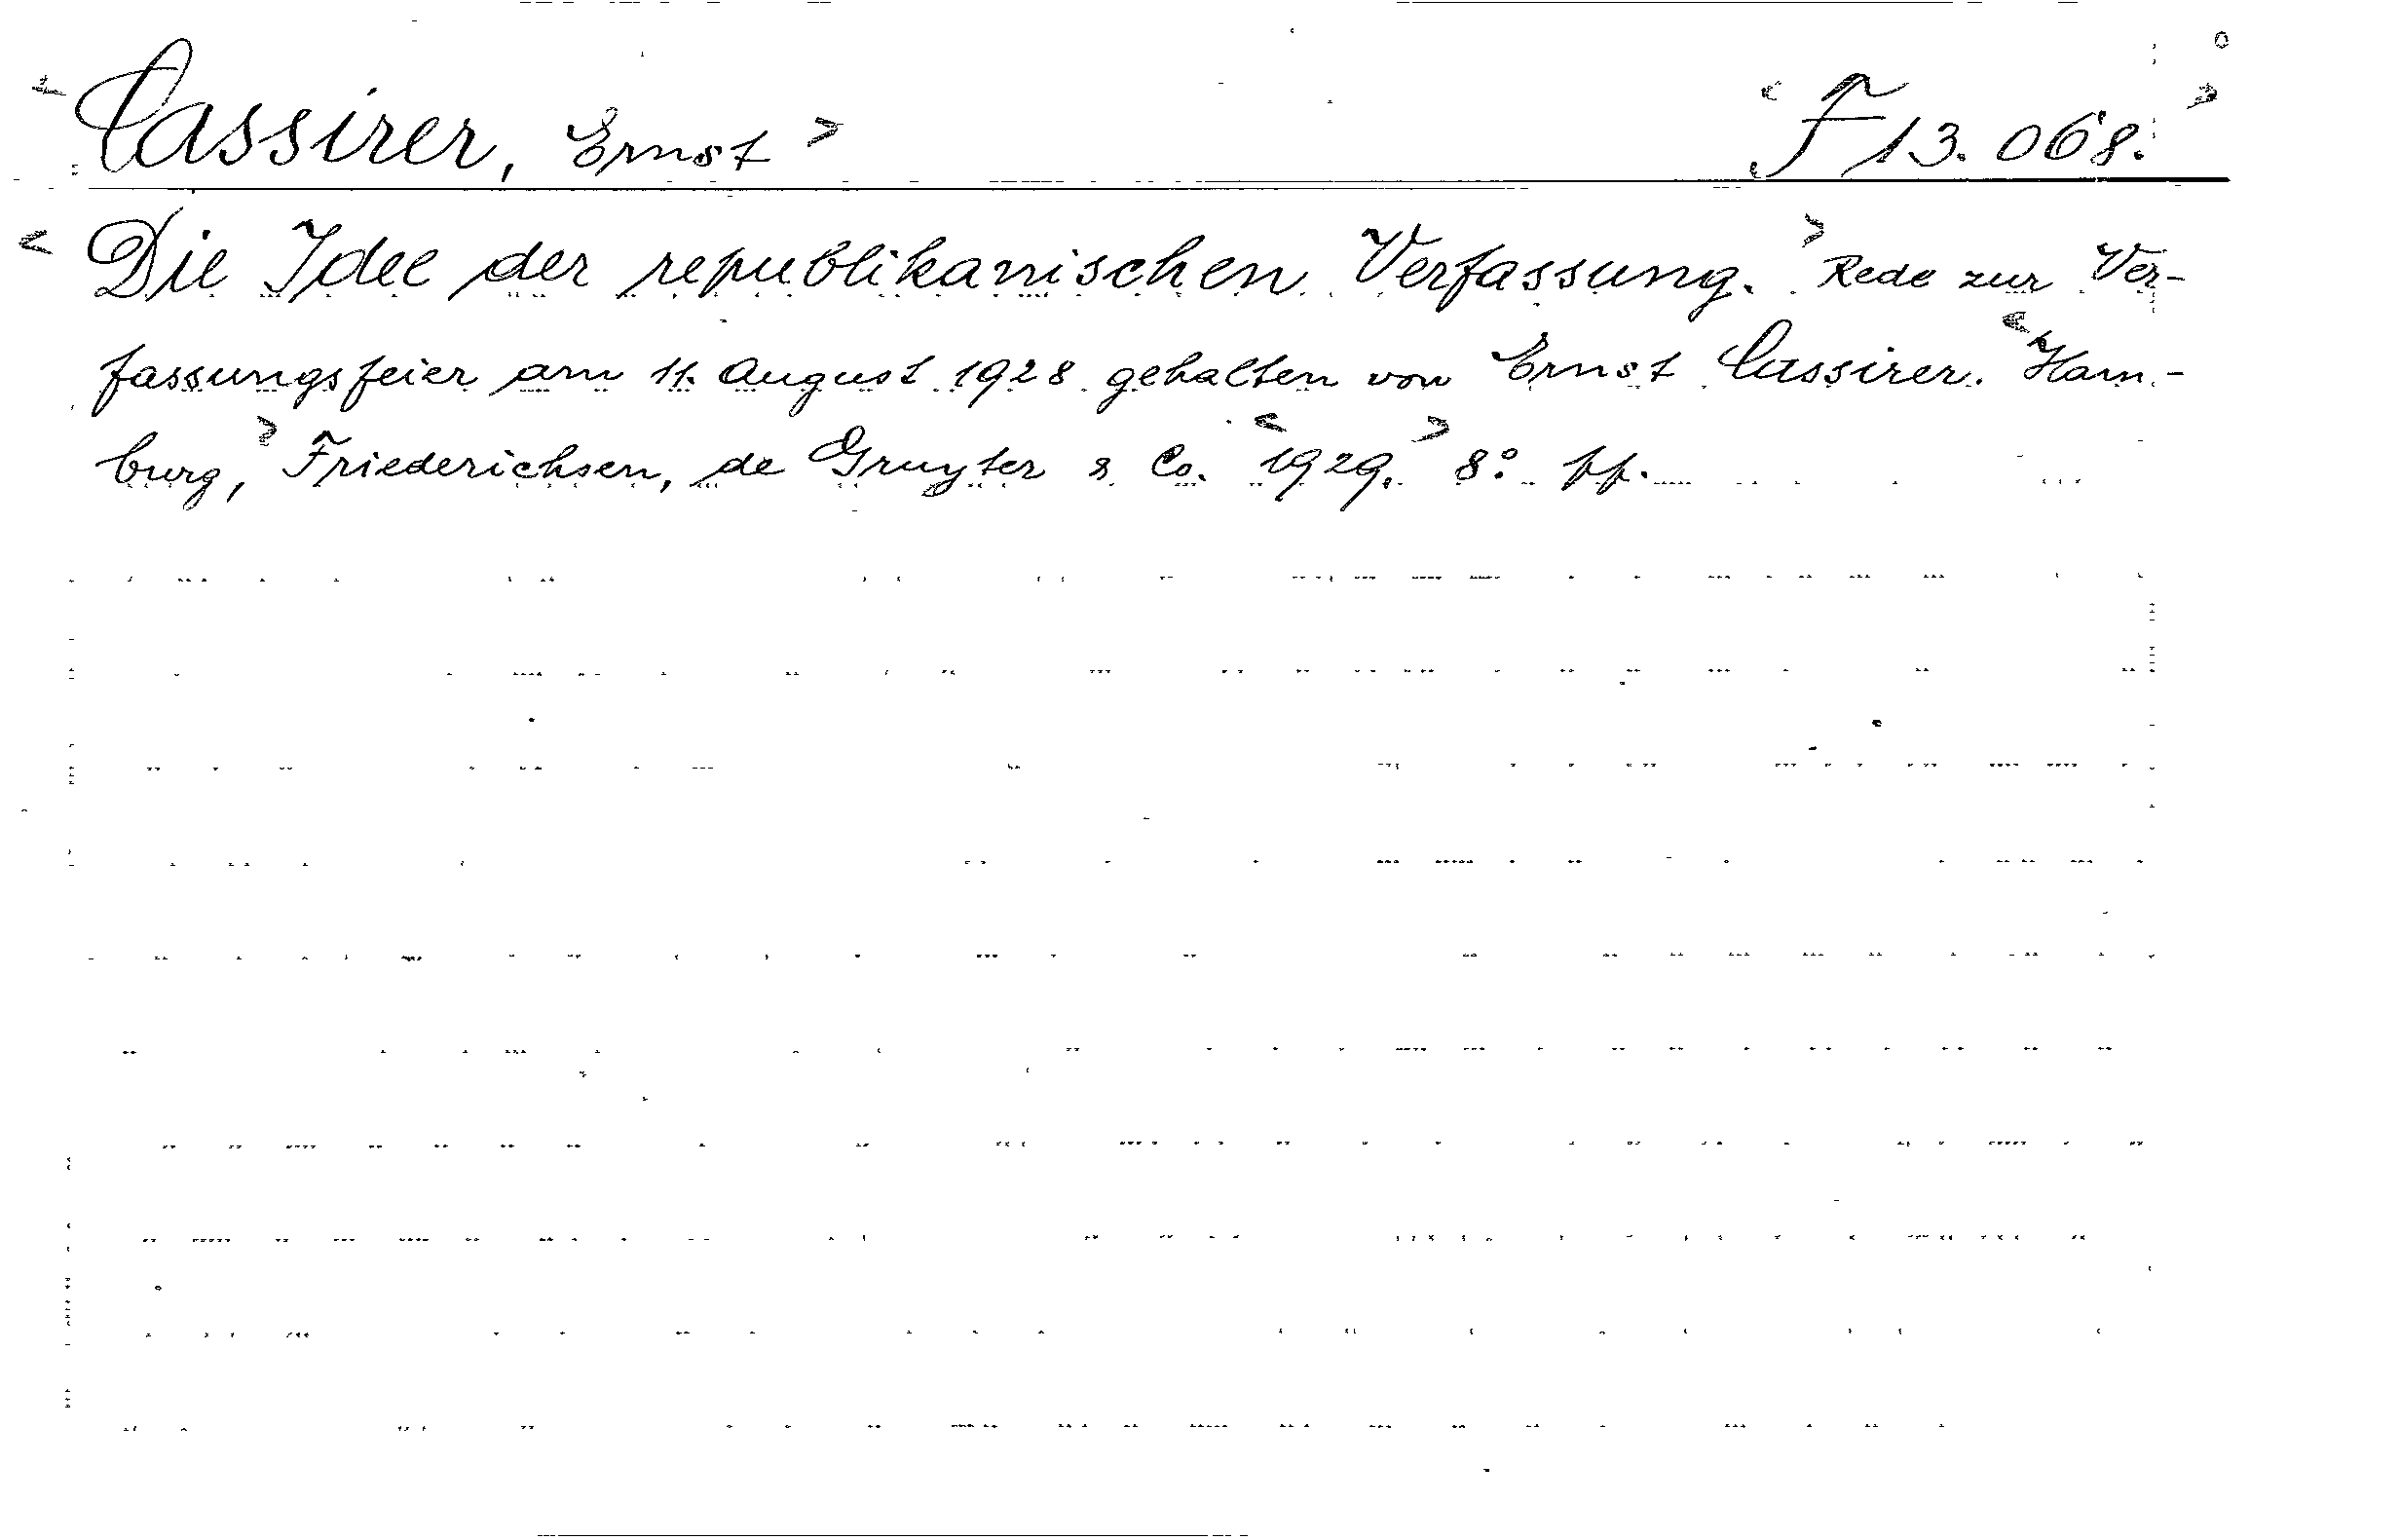 < Cassirer, Ernst > < F 13.068. >
< Die Idee der republikanischen Verfassung. > Rede zur Ver-
fassungsfeier am 11. August 1928 gehalten von Ernst Cassirer. < Ham-
burg, > Friederichsen, de Gruyter & Co. < 1929. > 8° pp.